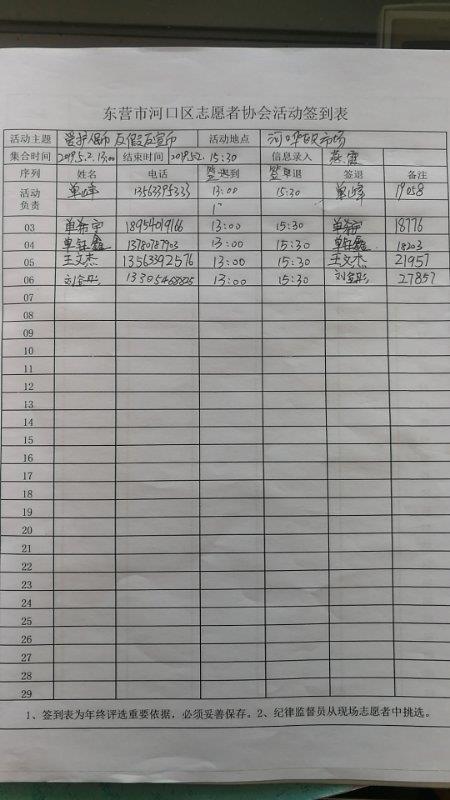 东营市河口区志愿者协会活动签到表
活动主题 爱护人民币 反假反宣币 活动地点 河口华民市场
集合时间 2019.5.2. 13:00 结束时间 2019.5.2. 15:30 信息录入 燕霞
序列 姓名 电话 签到 迟到 签退 早退 签退 备注
活动负责 单峰 13563395333 13:00 15:30 单峰 19058
03 单希宇 18954019166 13:00 15:30 单希宇 18776
04 单钰鑫 13780787903 13:00 15:30 单钰鑫 18203
05 王文杰 13563392576 13:00 15:30 王文杰 21957
06 刘宝彤 13305468825 13:00 15:30 刘宝彤 27857
07
08
09
10
11
12
13
14
15
16
17
18
19
20
21
22
23
24
25
26
27
28
29
1、签到表为年终评选重要依据，必须妥善保存。2、纪律监督员从现场志愿者中挑选。